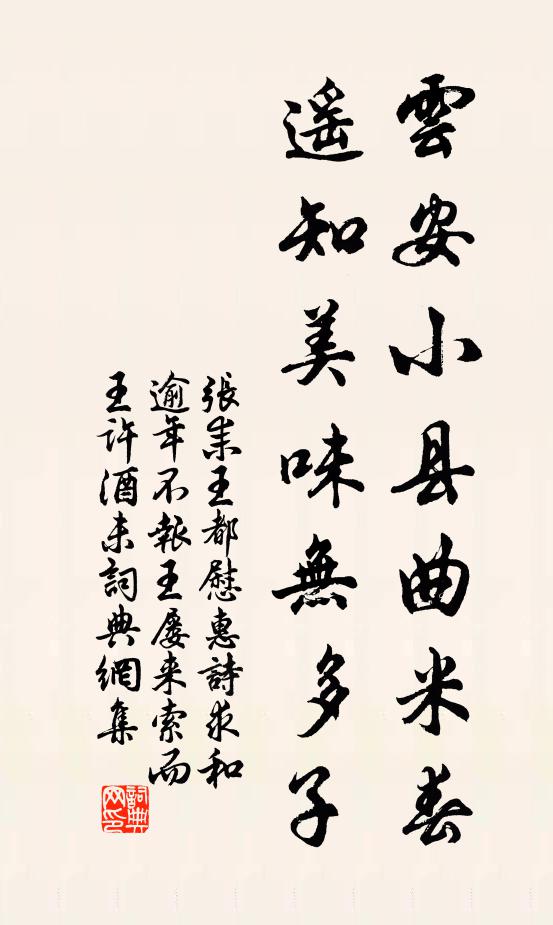 雲安小县曲米春
遥知美味無多子
張耒王都慰惠詩求和
逾年不報王屡来索而
王許酒未詞典網集
詞典
网印